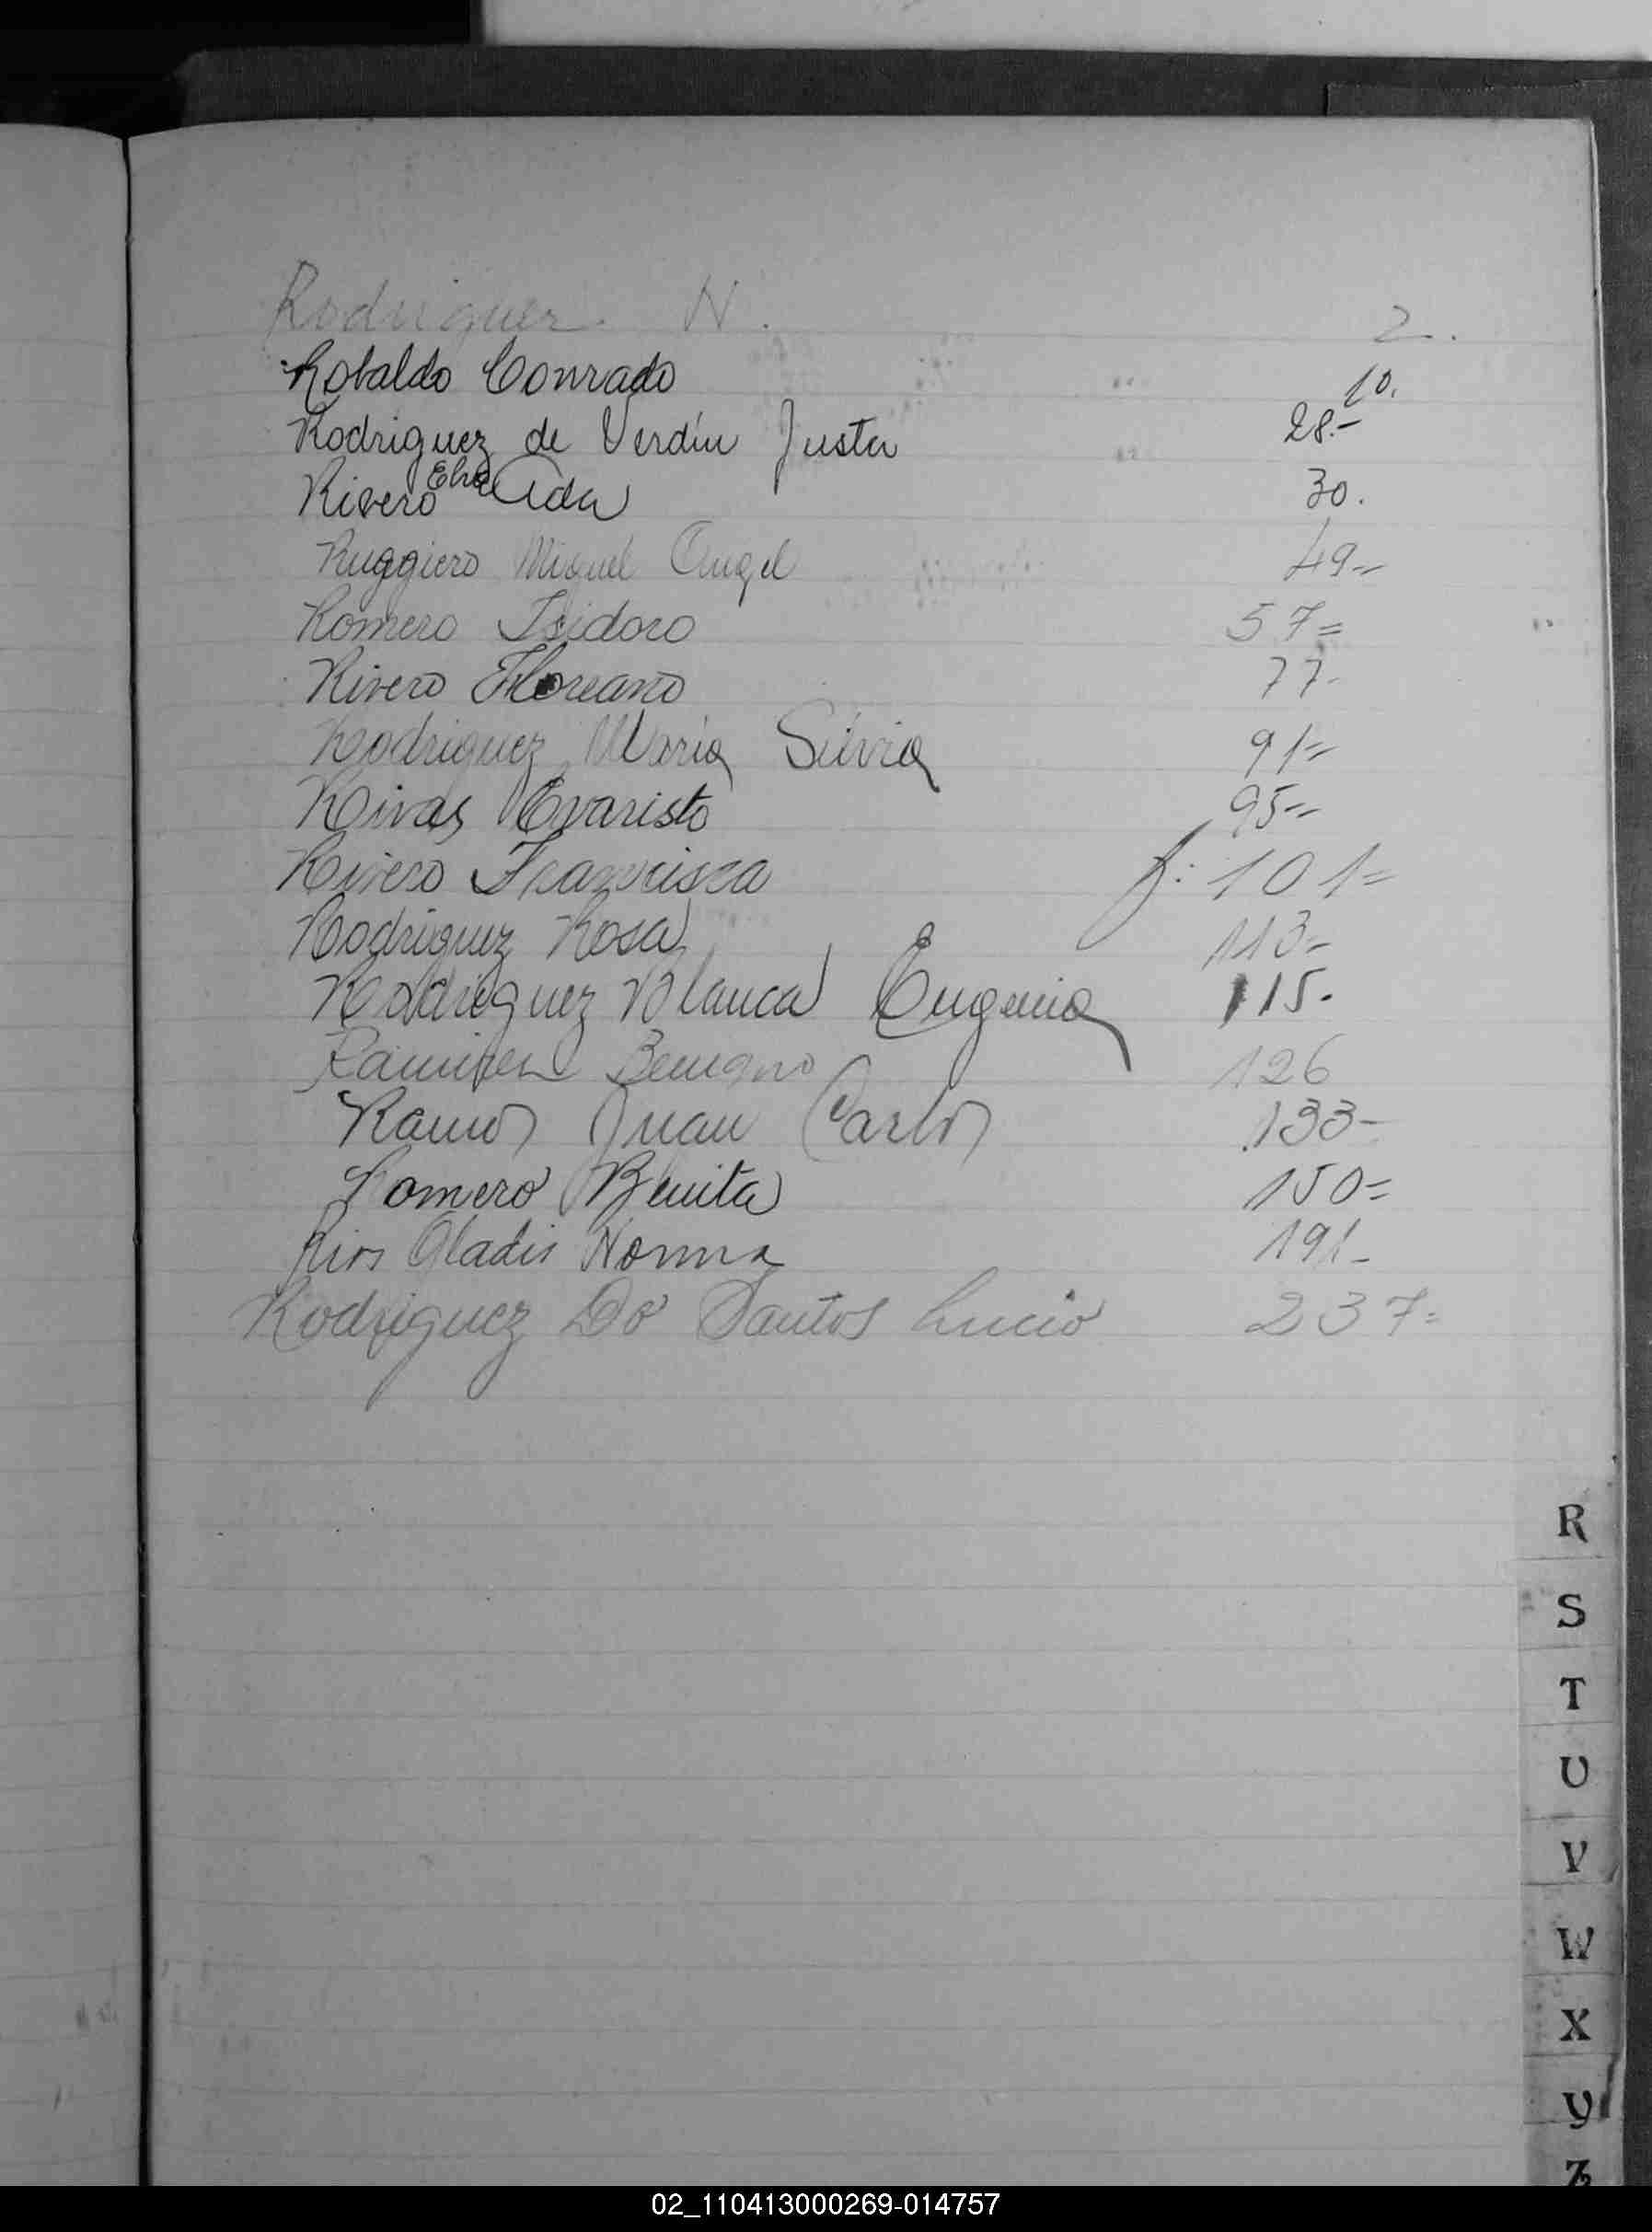 Rodriguez. N. 2.
Robaldo Conrado 10.
Rodriguez de Verdín Justa 28.-
Rivero Elva Ada 30.
Ruggiero Miguel Angel 49--
Romero Isidoro 57=
Rivero Floreano 77-
Rodriguez Maria Silvia 91=
Rivas Evaristo 95--
Rivero Francisca f: 101=
Rodriguez Rosa 113-
Rodriguez Blanca Eugenia 115.
Ramirez Benigno 126
Ramos Juan Carlos 133-
Romero Benita 150=
Rios Gladis Norma 191-
Rodriguez Do Santos Lucio 237=
R
S
T
U
V
W
X
Y
Z
02_110413000269-014757